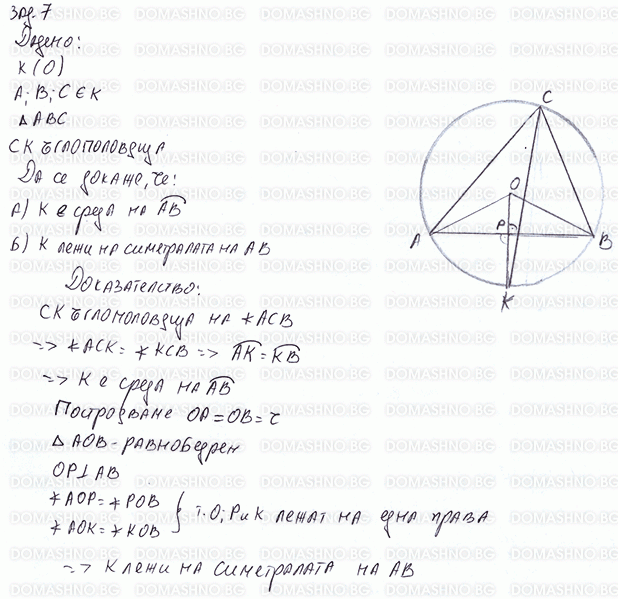 Зад. 7
Дадено:
K (O)
A; B; C ∈ K
△ ABC
CK ъглополовяща
Да се докаже, че:
А) K е среда на AB
Б) K лежи на симетралата на AB
Доказателство:
CK ъглополовяща на ∢ACB
=> ∢ACK = ∢KCB => AK = KB
=> K е среда на AB
Построяваме OA = OB = r
△ AOB - равнобедрен
OP ⊥ AB
∢AOP = ∢POB
∢AOK = ∢KOB } т. O; P и K лежат на една права
=> K лежи на симетралата на AB
C
O
P
A
B
K
DOMASHNO.BG